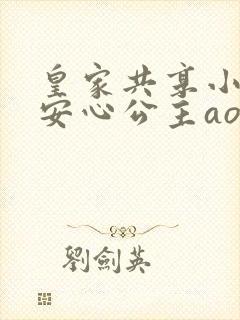 皇家共享小
安心公主ao
劉劍英